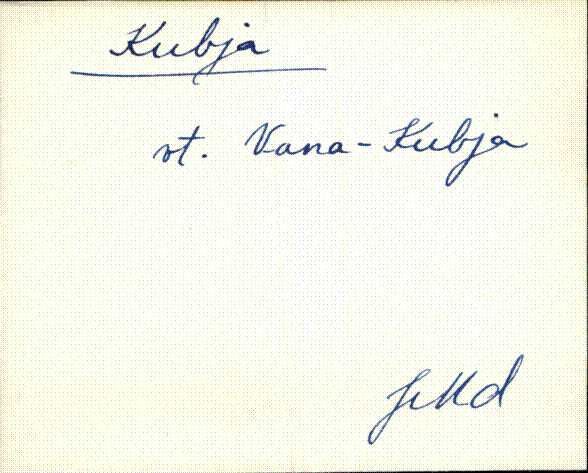 Kubja
vt. Vana-Kubja